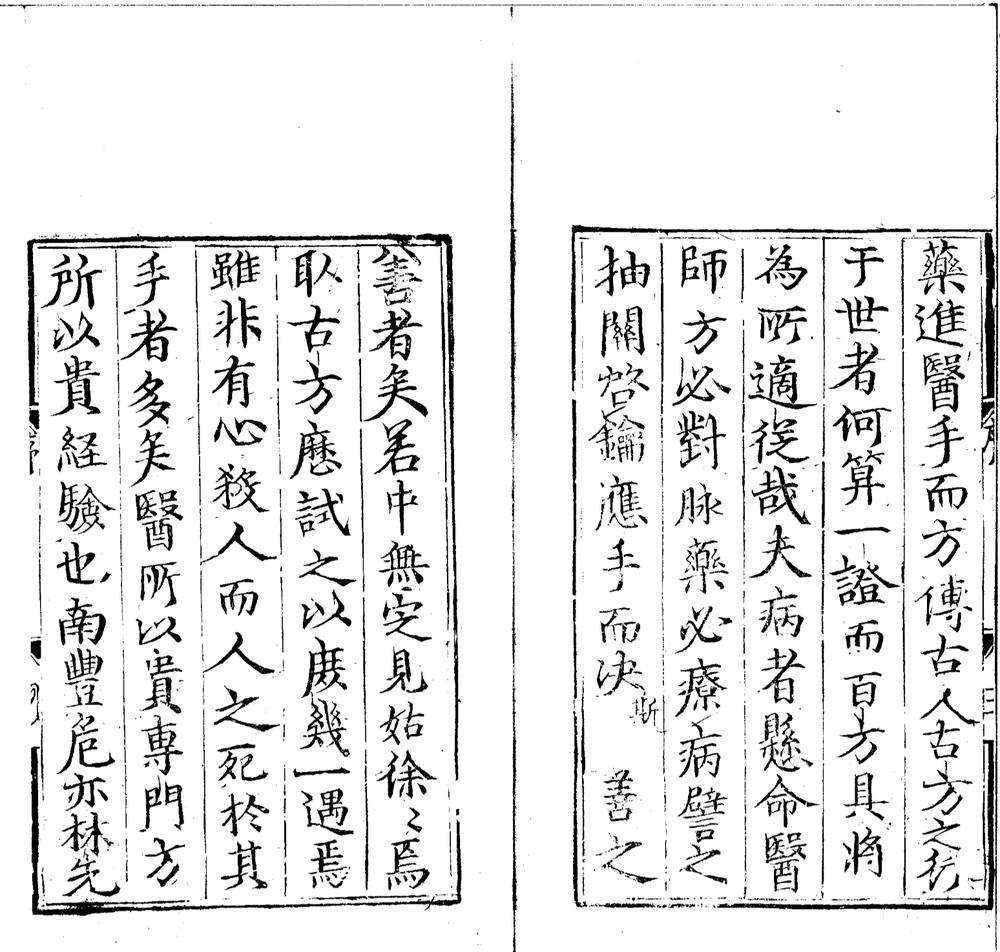 藥進醫手而方傳古人古方之行
于世者何算一證而百方具將
為所適從哉夫病者懸命醫
師方必對脉藥必療病譬之
抽關啓鑰應手而决斯善之
善者矣若中無定見姑徐〻焉
取古方歷試之以庶幾一遇焉
雖非有心殺人而人之死於其
手者多矣醫所以貴專門方
所以貴経驗也南豐危亦林先